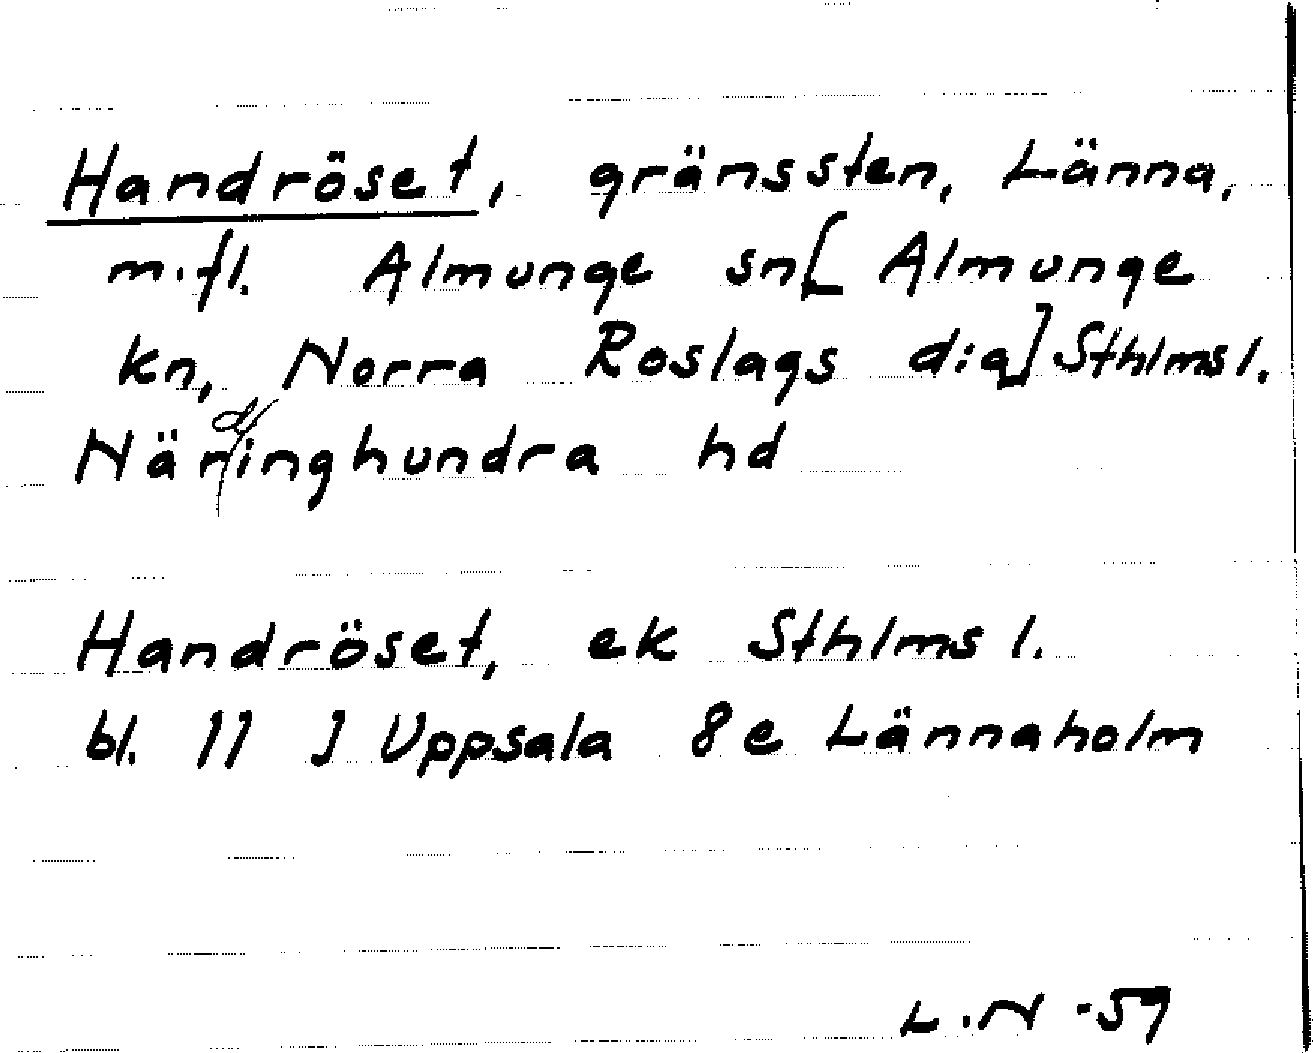 Handröset, gränssten, Länna,
m.fl. Almunge sn[ Almunge
kn, Norra Roslags d:a] Sthlms l.
Närdinghundra hd
Handröset, ek Sthlms l.
bl. 11 J Uppsala 8e Lännaholm
L.N -59